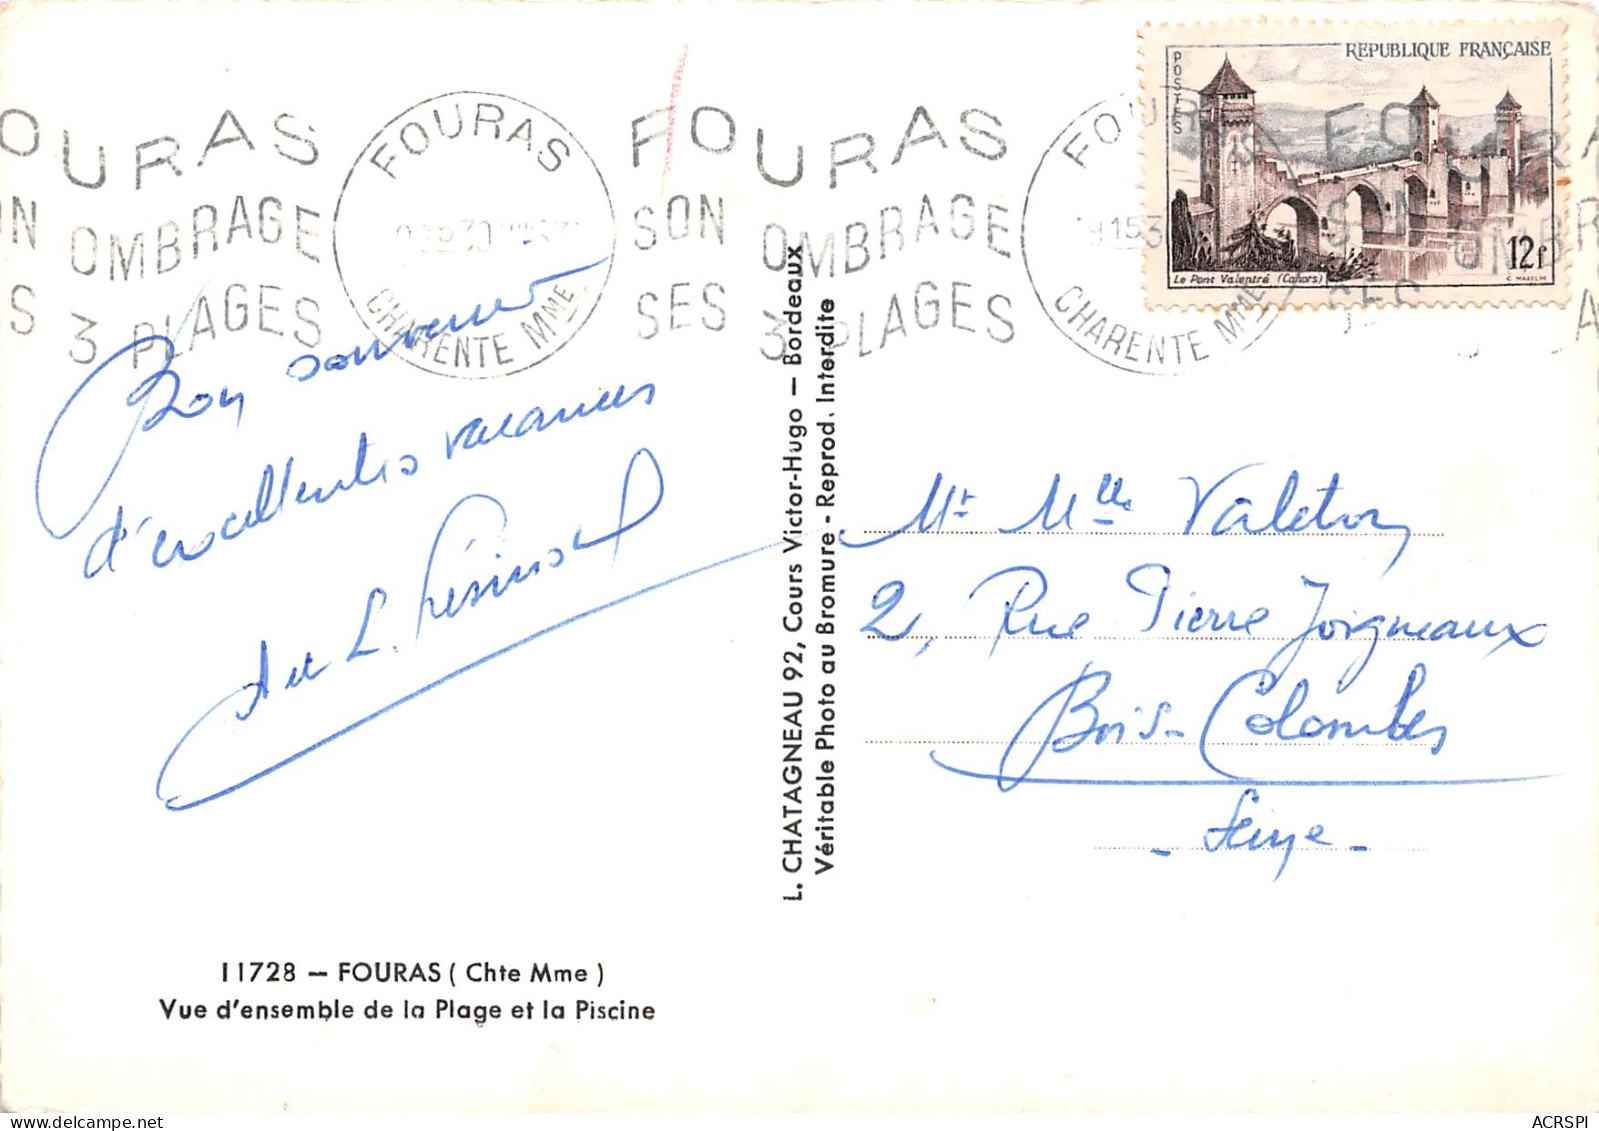 FOURAS
SON OMBRAGE
SES 3 PLAGES
FOURAS
CHARENTE MME
FOURAS
SON OMBRAGE
SES 3 PLAGES
FOURAS
CHARENTE MME
POSTES
REPUBLIQUE FRANÇAISE
12f
Le Pont Valentré (Cahors)
C. MAZELIN
Bon souvenir
d'excellentes vacances
L. CHATAGNEAU 92, Cours Victor-Hugo — Bordeaux
Véritable Photo au Bromure - Reprod. Interdite
Mr Mlle Valeton
2, Rue Pierre Joigneaux
Bois-Colombes
- Seine -
11728 — FOURAS ( Chte Mme )
Vue d'ensemble de la Plage et la Piscine
ACRSPI